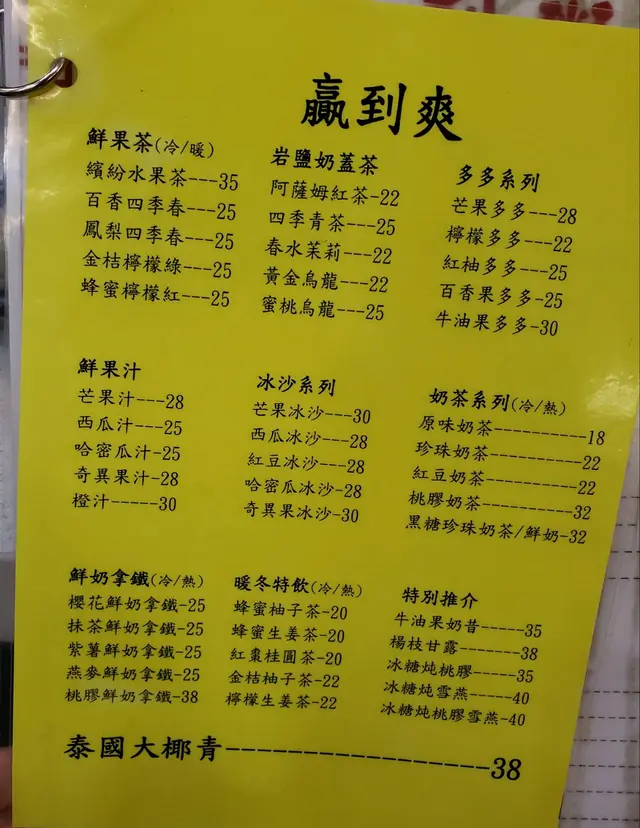 贏到爽
鮮果茶(冷/暖)
繽紛水果茶---35
百香四季春---25
鳳梨四季春---25
金桔檸檬綠---25
蜂蜜檸檬紅---25
岩鹽奶蓋茶
阿薩姆紅茶-22
四季青茶---25
春水茉莉---22
黃金烏龍---22
蜜桃烏龍---25
多多系列
芒果多多---28
檸檬多多---22
紅柚多多---25
百香果多多-25
牛油果多多-30
鮮果汁
芒果汁---28
西瓜汁---25
哈密瓜汁--25
奇異果汁--28
橙汁-----30
冰沙系列
芒果冰沙---30
西瓜冰沙---28
紅豆冰沙---28
哈密瓜冰沙-28
奇異果冰沙-30
奶茶系列(冷/熱)
原味奶茶----------18
珍珠奶茶----------22
紅豆奶茶----------22
桃膠奶茶----------32
黑糖珍珠奶茶/鮮奶-32
鮮奶拿鐵(冷/熱)
櫻花鮮奶拿鐵-25
抹茶鮮奶拿鐵-25
紫薯鮮奶拿鐵-25
燕麥鮮奶拿鐵-25
桃膠鮮奶拿鐵-38
暖冬特飲(冷/熱)
蜂蜜柚子茶-20
蜂蜜生姜茶-20
紅棗桂圓茶-20
金桔柚子茶-22
檸檬生姜茶-22
特別推介
牛油果奶昔-----35
楊枝甘露-------38
冰糖炖桃膠-----35
冰糖炖雪燕-----40
冰糖炖桃膠雪燕-40
泰國大椰青-----------------38